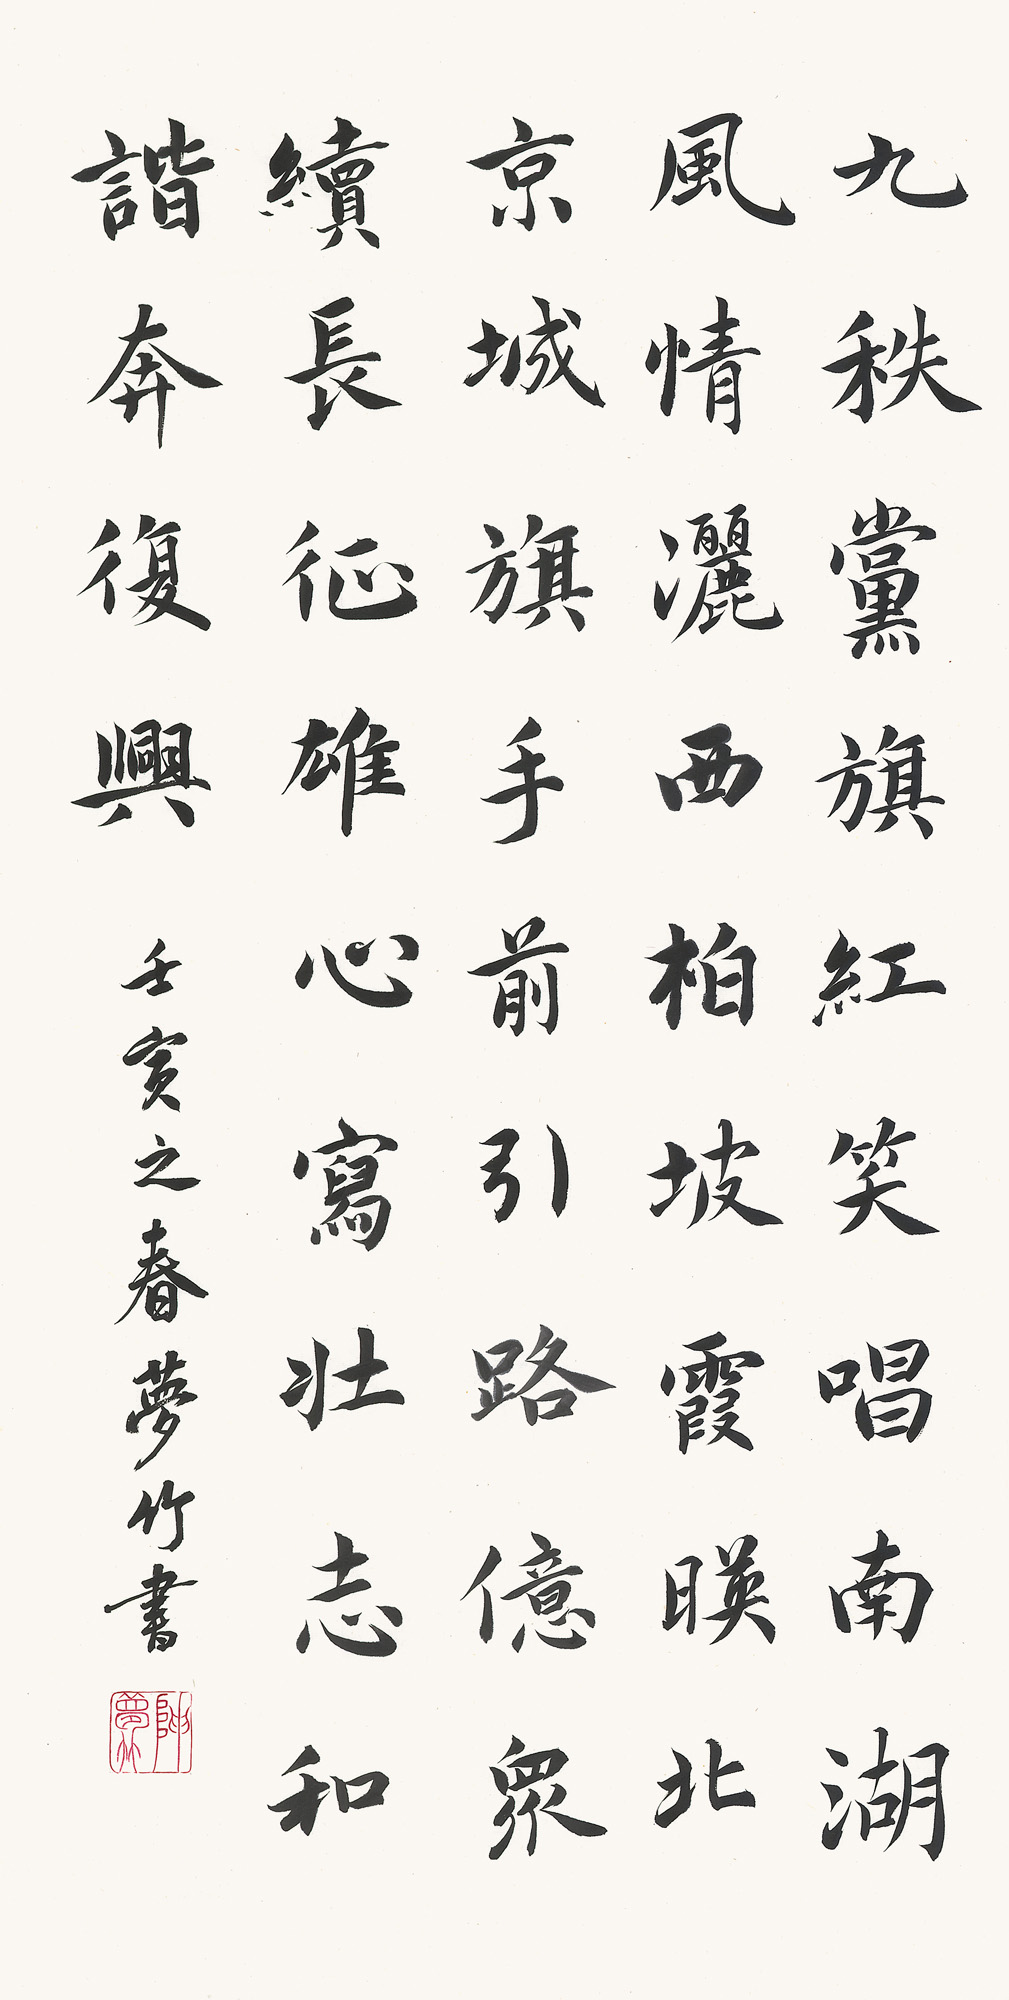 九秩黨旗紅笑唱南湖
風情灑西柏坡霞暎北
京城旗手前引路億衆
續長征雄心寫壯志和
諧奔復興
壬寅之春夢竹書